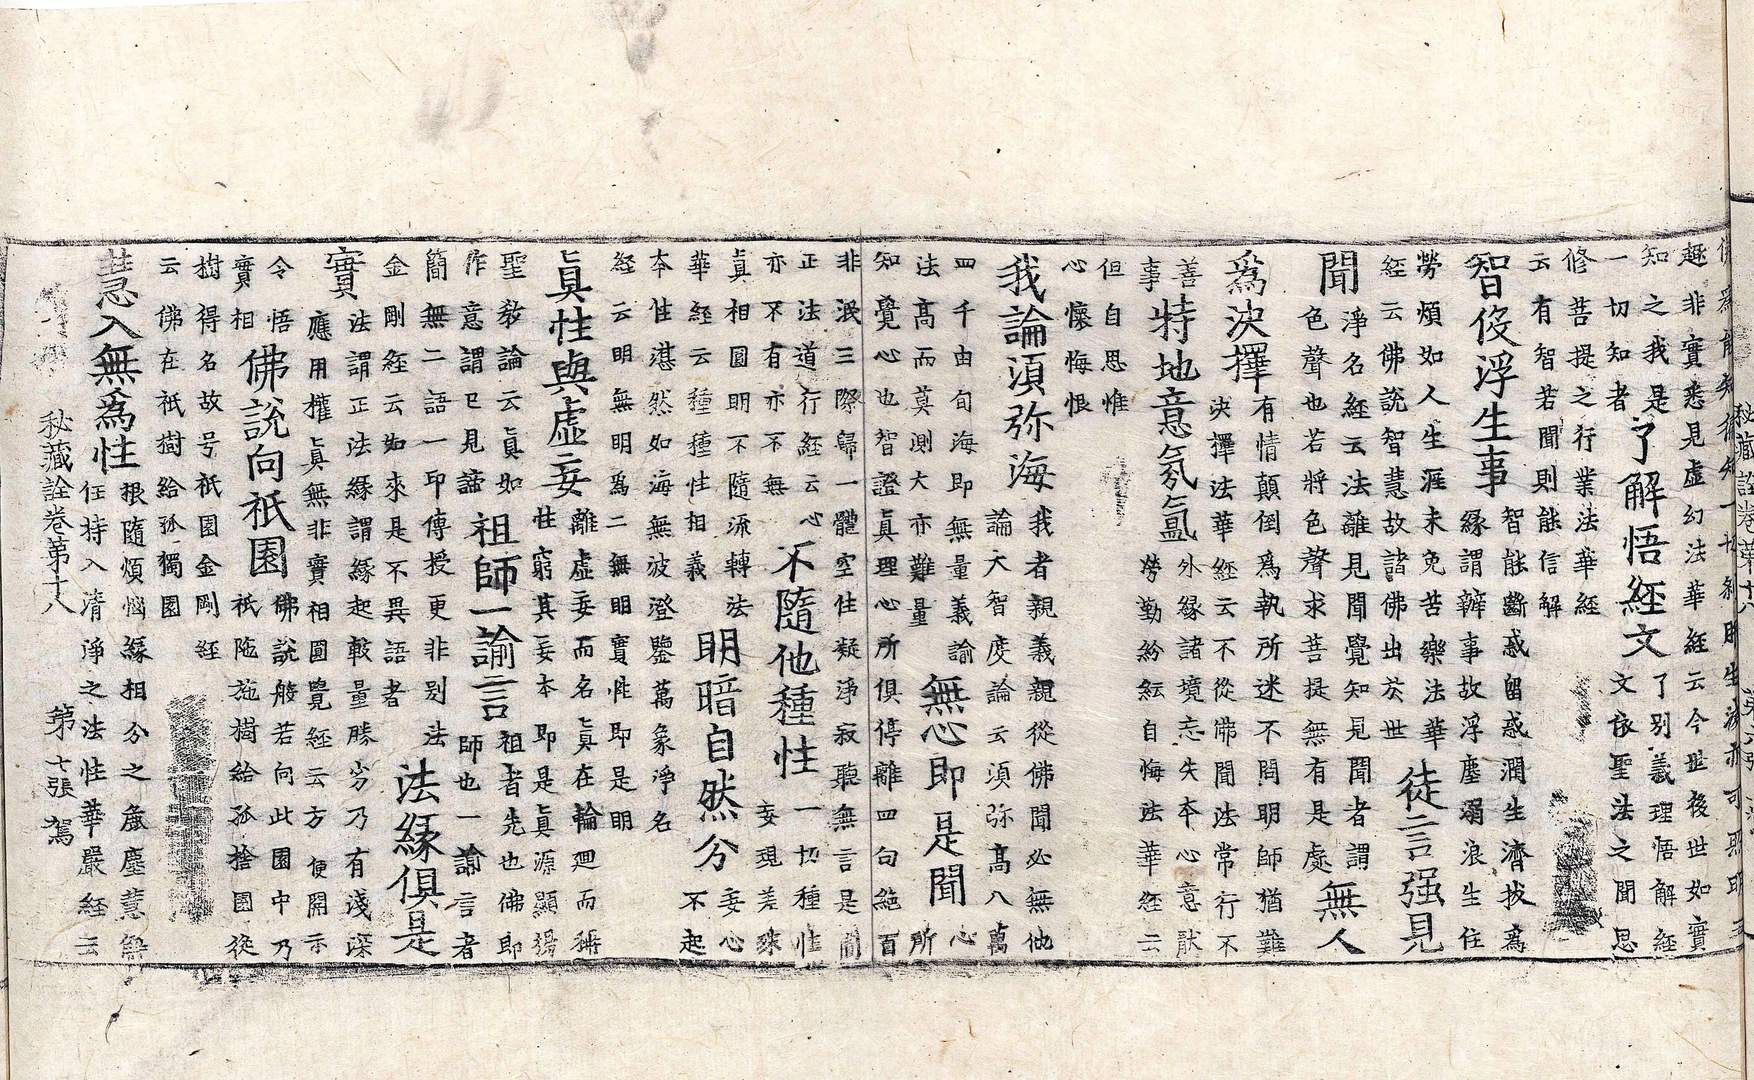 趣非實悉見虛幻法華經云今世後世如實
知之我是
一切知者
了解悟經文
了別義理悟解經
文依聖法之聞思
修菩提之行業法華經
云有智若聞則能信解
智役浮生事
智能斷惑留惑潤生濟拔爲
緣謂辦事故浮塵溺浪生住
勞煩如人生涯未免苦樂法華
經云佛說智慧故諸佛出於世
徒言强見
聞
淨名經云法離見聞覺知見聞者謂
色聲也若將色聲求菩提無有是處
無人
爲決擇
有情顛倒爲執所迷不問明師猶難
決擇法華經云不從佛聞法常行不
善
事
特地意氛氳
外緣諸境忘失本心意猒
勞勤紛紜自悔法華經云
但自思惟
心懷悔恨
我論須弥海
我者親義親從佛聞必無他
論大智度論云須弥髙八萬
四千由旬海即無量義諭
法髙而莫測大亦難量
無心即是聞
心
所
知覺心也智證眞理心所俱停離四句絶百
非泯三際歸一體空住疑淨寂聽無言是聞
正法道行經云心
亦不有亦不無
不隨他種性
一切種性
妄現差殊
眞相圓明不隨流轉法
華經云種種性相義
明暗自然分
妄心
不起
本性湛然如海無波澄鑒萬象淨名
經云明無明爲二無明實性即是明
眞性與虛妄
離虛妄而名眞在輪迴而稱
性窮其妄本即是眞源顯揚
聖敎論云眞如
作意謂已見諦
祖師一諭言
祖者先也佛即
師也一諭言者
簡無二語一印傳授更非別法
金剛經云如來是不異語者
法緣俱是
實
法謂正法緣謂緣起敎量勝劣乃有淺深
應用權眞無非實相圓覺經云方便開示
令悟
實相
佛說向祇園
佛說般若向此園中乃
祇陁施樹給孤捨園從
樹得名故号祇園金剛經
云佛在祇樹給孤獨園
慧入無爲性
根隨煩惱緣相分之麁塵慧解
任持入清淨之法性華嚴經云
秘藏詮卷第十八 第七張 駕